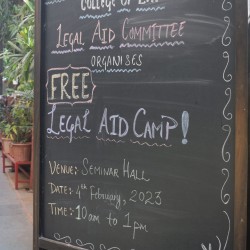 College of Law
Legal Aid Committee
Organises
FREE
Legal Aid Camp!
Venue: Seminar Hall
Date: 4th February, 2023
Time: 10 am to 1 pm